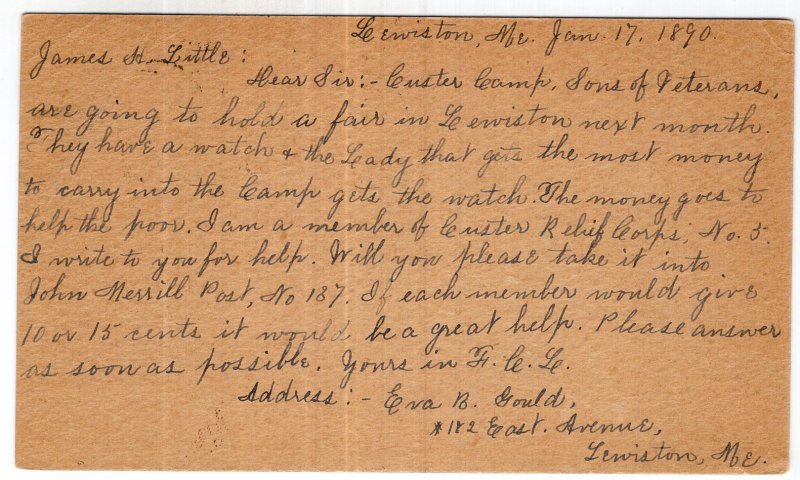 Lewiston, Me. Jan. 17, 1890.
James H. Little:
Dear Sir:- Custer Camp, Sons of Veterans,
are going to hold a fair in Lewiston next month.
They have a watch & the Lady that gets the most money
to carry into the Camp gets the watch. The money goes to
help the poor. I am a member of Custer Relief Corps, No. 5.
I write to you for help. Will you please take it into
John Merrill Post, No 187. If each member would give
10 or 15 cents it would be a great help. Please answer
as soon as possible. Yours in F. C. L.
Address:- Eva B. Gould,
#182 East. Avenue,
Lewiston, Me.